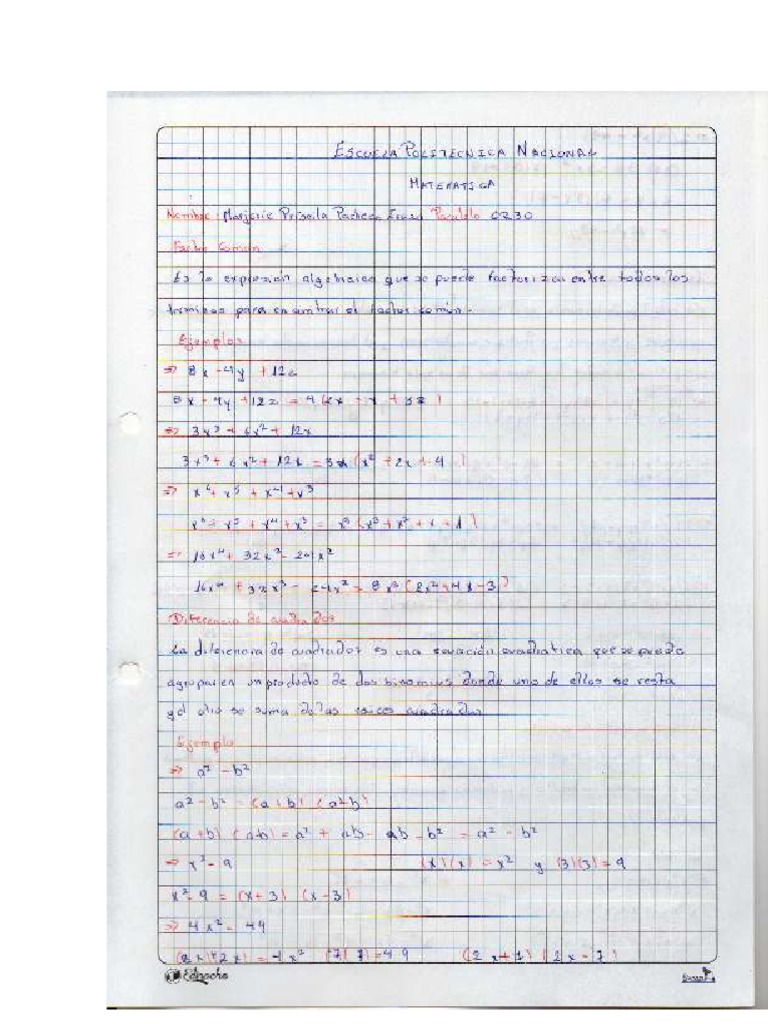 ESCUELA POLITECNICA NACIONAL
MATEMATICA
Nombre: Marjorie Pacheco Paralelo 0230
Factor Común
Es la expresión algebraica que se puede factorizar entre todos los
terminos para encontrar el factor común.
Ejemplos
⇒ 8x - 4y + 12z
8x - 4y + 12z = 4 (2x - y + 3z)
⇒ 3x³ + 6x² + 12x
3x³ + 6x² + 12x = 3x (x² + 2x + 4)
⇒ x⁶ + x⁵ + x⁴ + x³
= x³ (x³ + x² + x + 1)
⇒ 16x⁴ + 32x³ - 24x²
16x⁴ + 32x³ - 24x² = 8x² (2x² + 4x - 3)
Diferencia de cuadrados
La diferencia de cuadrados es una cuadratica que se puede
agrupar en un producto de dos binomios donde uno de ellos se resta
se suma de las cuadradas
Ejemplo
⇒ a² - b²
a² - b² =
= a² + ab - ab - b² = a² - b²
⇒ x² - 9 (x)(x) = x² y (3)(3) = 9
x² - 9 = (x+3) (x-3)
⇒ 4x² -
(2x)(2x) = 4x² (7)(7) = 49 (2x - 7)